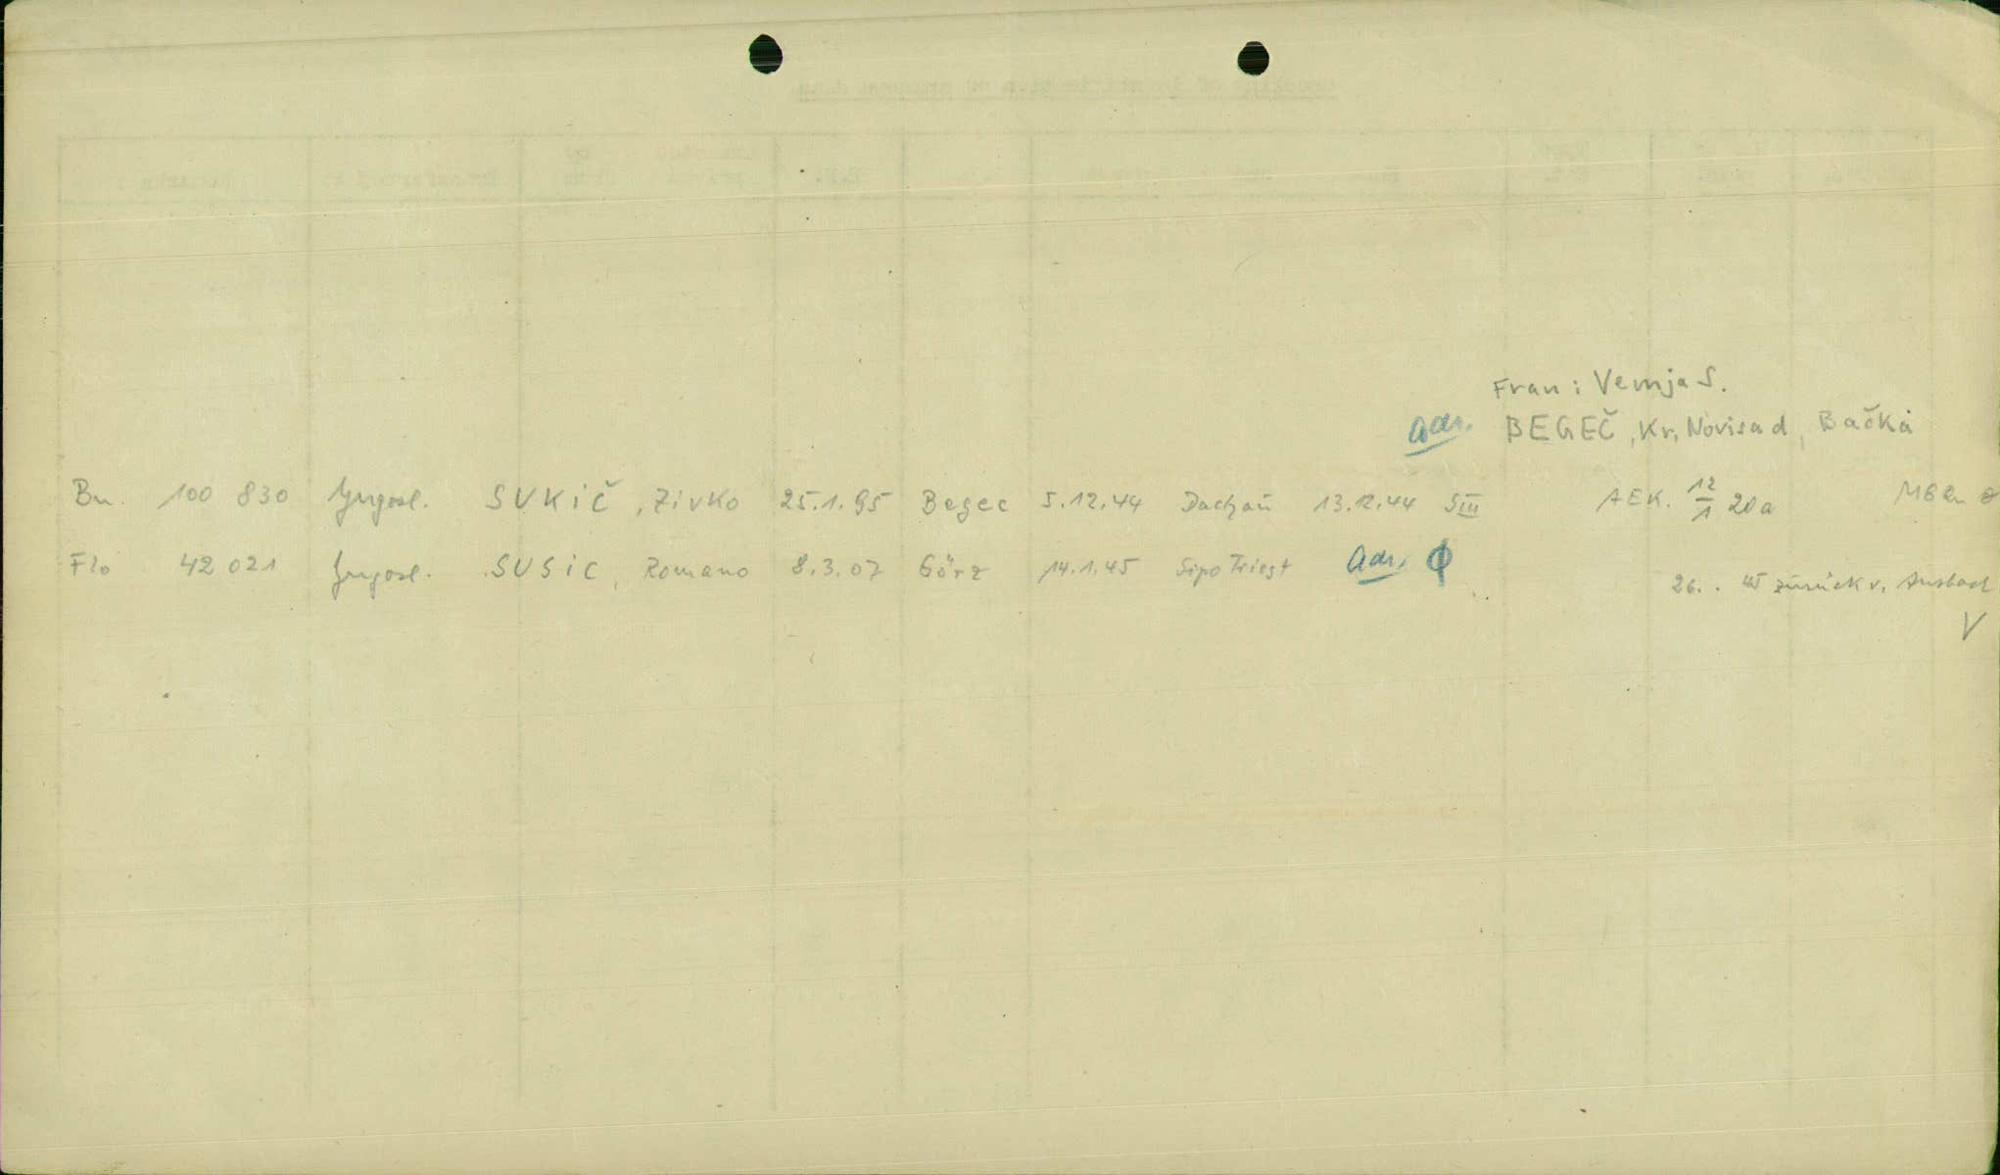 Frau: Vemja S.
Adr. BEGEČ, Kr. Novisad, Bačka
Bu. 100 830 Jugosl. SUKiČ, Zivko 25.1.95 Begec 5.12.44 Dachau 13.12.44 SIII AEK. 12/1 20a
Flo 42 021 Jugosl. SUSiC, Romano 8.3.07 Görz 14.1.45 Sipo Triest Adr. ϕ
26. . 45 zurück v. Ansbach
V